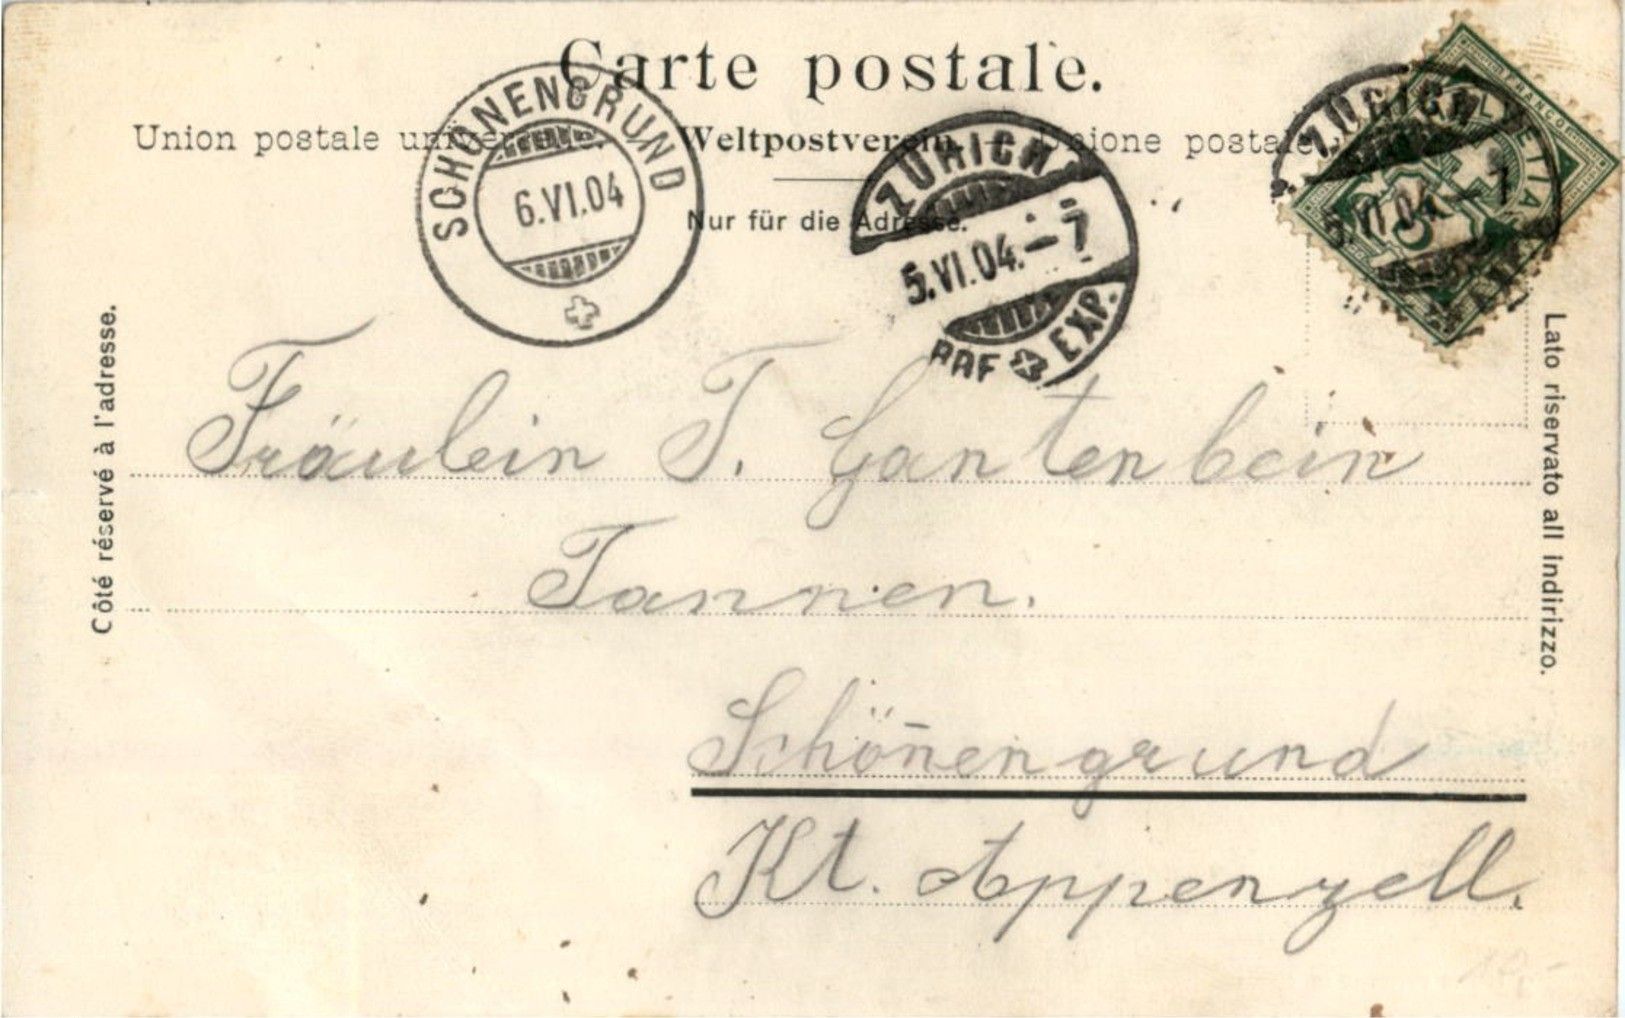 Carte postale.
Union postale universelle. — Weltpostverein. — Unione postale
Nur für die Adresse.
SCHÖNENGRUND
6.VI.04
ZÜRICH
5.VI.04.–7
BRF EXP.
ZÜRICH
5.VI.04.–7
HELVETIA
FRANCO
5
Côté réservé à l'adresse.
Lato riservato all indirizzo.
Fräulein T. Gantenbein
Tannen.
Schönengrund
Kt. Appenzell.